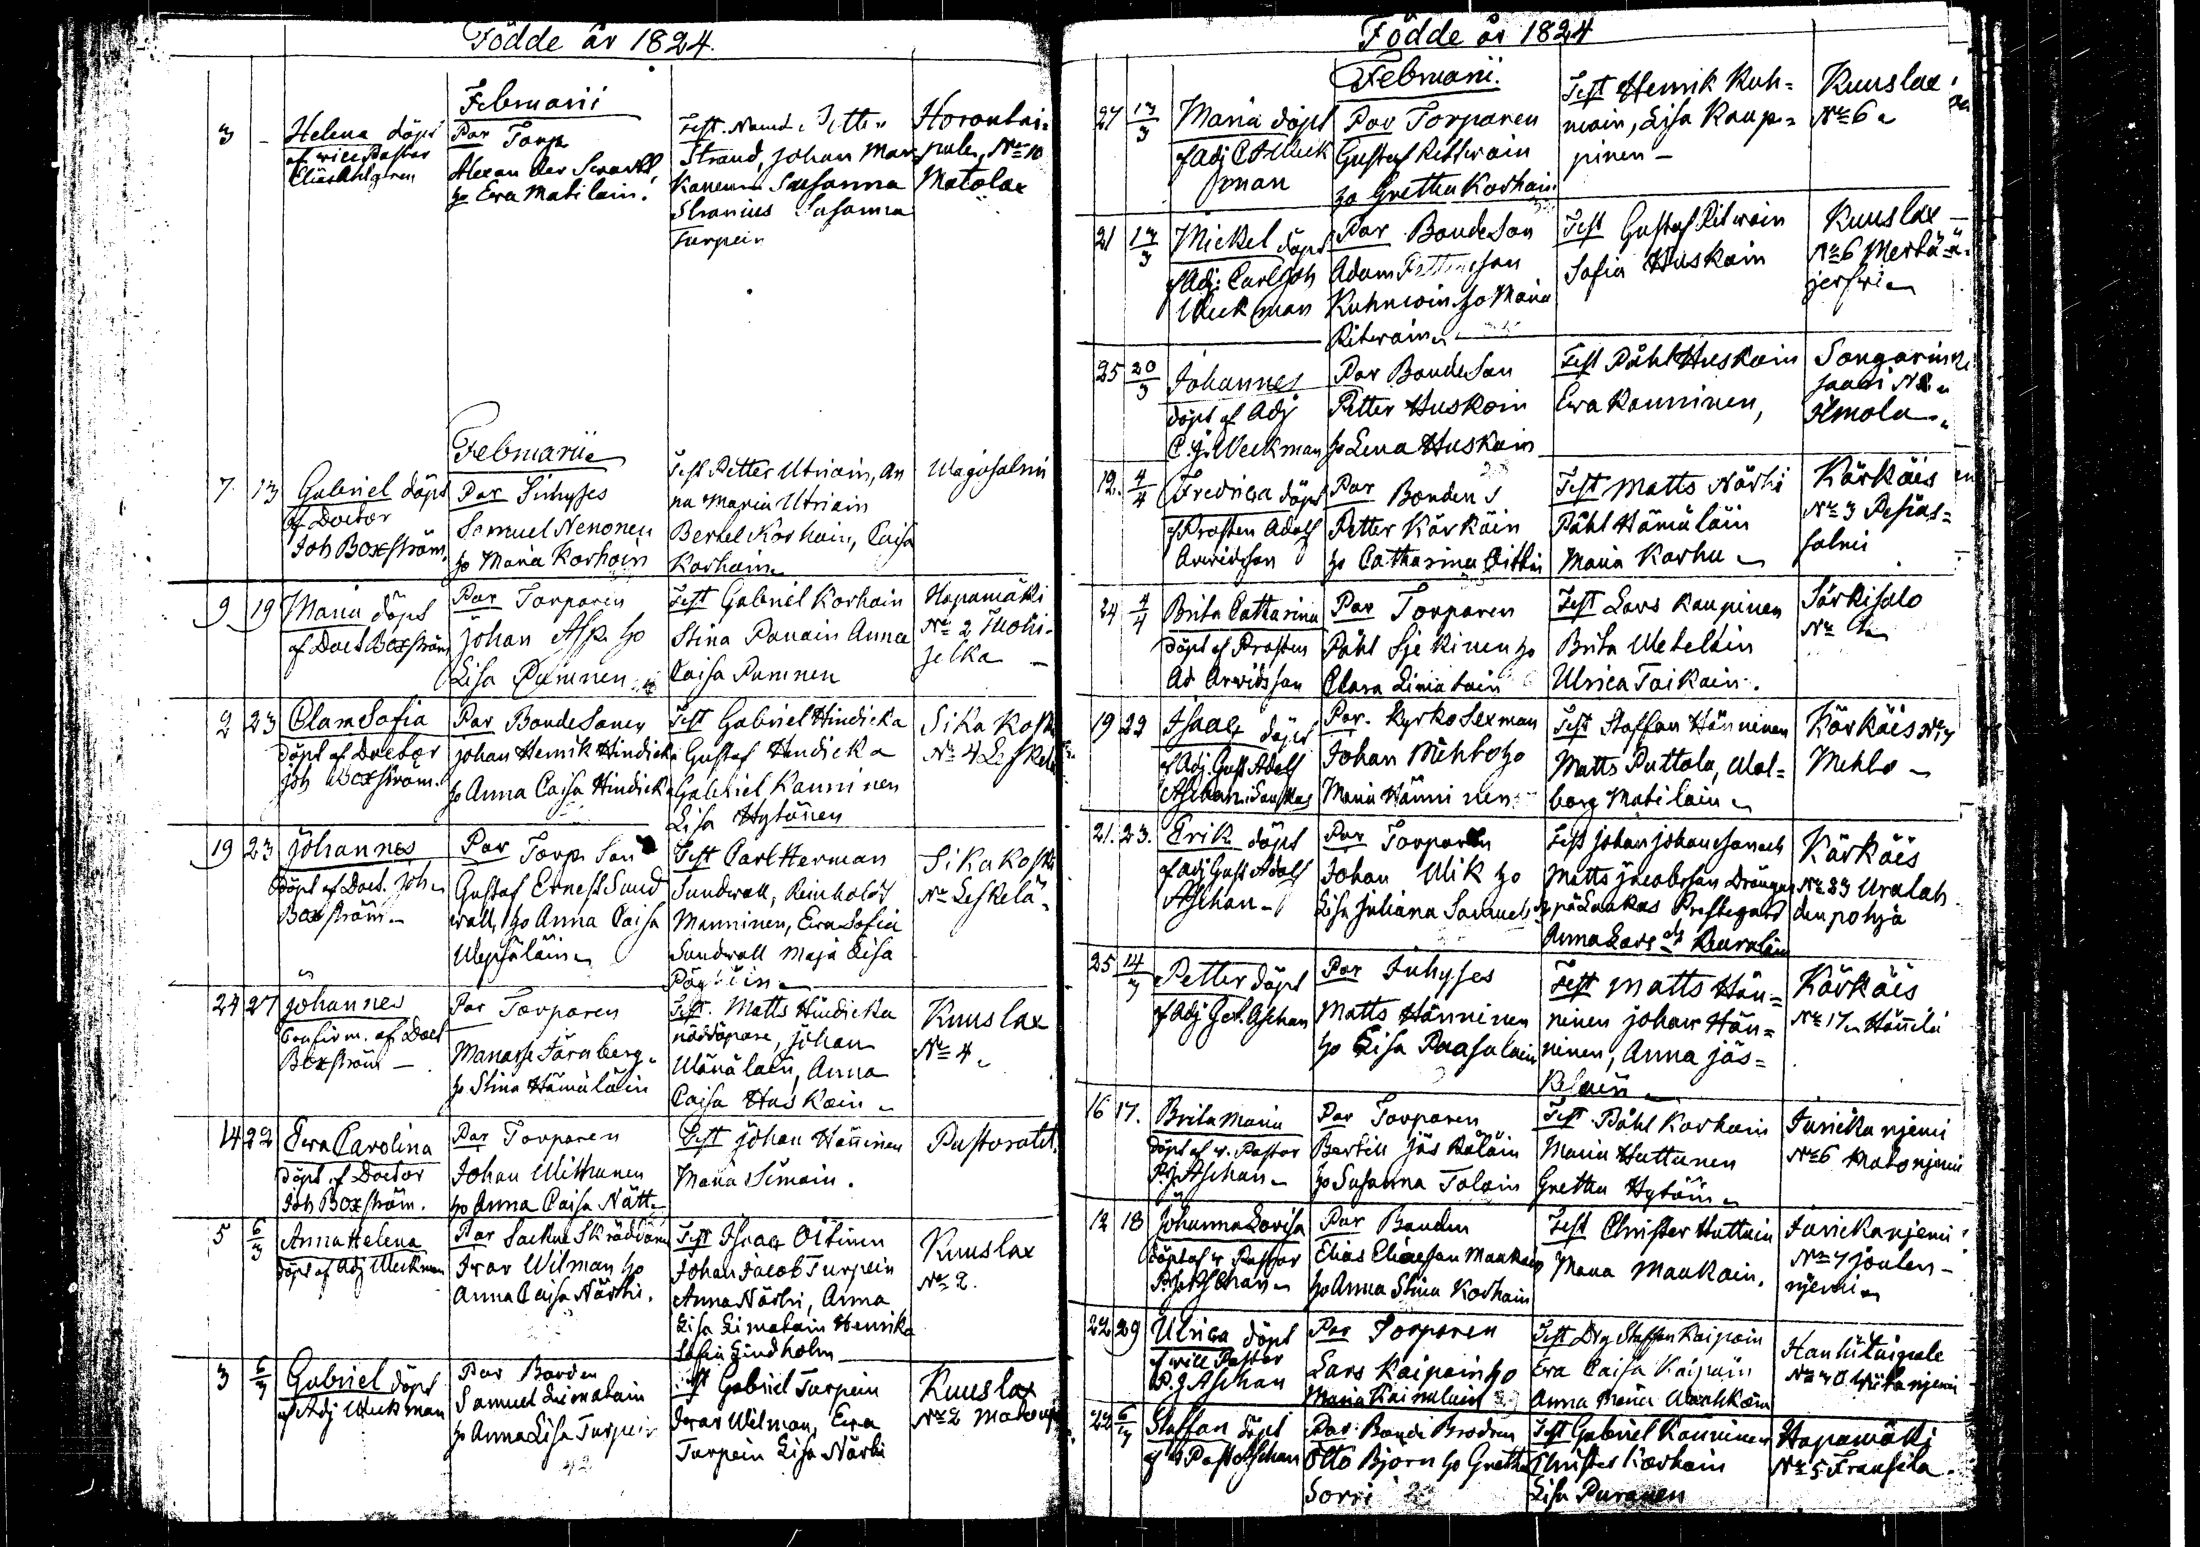 Födde år 1824.
Februarii
3 - Helena döpt
af vice Pastor
Par Torp.
Alexander
ho Eva Matilain.
Test. Nämd. Petter
Strand, Johan Mar-
kanen Susanna
Stranius Susanna
Turpein
Horontai-
pale, No 10
Matolax
Februarii
7. 13 Gabriel döpt
af Doctor
Joh Boxström
Par Inhyses
Samuel Nenonen
ho Maria Korhoin
Test Petter Utriain, An
na Maria Utriain
Bertel Korhoin, Caisa
Korhoin
Wagosalmi
9 19 Maria döpt
af Doct Boxström
Par Torparen
Johan Asp ho
Lisa Pumnen
Test Gabriel Korhoin
Stina Panain Anna
Caisa Pumnen
Hapamäki
No 2 Tuohi-
jelka
2 23 Clara Sofia
döpt af Doctor
Joh Boxström
Par Bonde Sonen
Johan Henrik Hindicka
ho Anna Caisa Hindicka
Test Gabriel Hindicka
Gustaf Hindicka
Gabriel Kanninen
Lisa Hytönen
Sika kosk
No 4 Leskelä
19 23 Johannes
döpt af Doct. Joh.
Boxström
Par Torp. Son
Gustaf Ernest Sund
wall, ho Anna Caisa
Wepsäläin
Test Carl Herman
Sundwall, Reinhold
Manninen, Eva Sofia
Sundwall Maja Lisa
Sikakosk
No Leskelä
24 27 Johannes
Confirm. af Doct
Boxström
Par Torparen
Manasse Färnberg
ho Stina Hämäläin
Test. Matts Hindicka
nöddöpare, Johan
Wänäläin, Anna
Caisa Huskoin
Kuuslax
No 4
14 22 Eva Carolina
döpt af Doctor
Joh Boxström.
Par Torparen
Johan Mithunen
ho Anna Caisa Nätt
Test Johan Hänninen
Maria Simoin.
Pastoratet.
5 6/3 Anna Helena
döpt af Adj Weckman
Par Sockne Skräddaren
Ivar Wilman ho
Anna Caisa Närhi.
Test Isaac Oitinen
Johan Jacob Turpein
Anna Närhi, Anna
Lisa Liimatain Henrika
Sofia Lindholm
Kuuslax
No 2.
3 6/3 Gabriel döpt
af Adj Weckman
Par Bonden
Samuel Liimatain
ho Anna Lisa Turpein
Test Gabriel Turpein
Ivar Wilman, Eva
Turpein Lisa Närhi
Kuuslax
No 2
42
Födde år 1824
Februarii.
27 13/3 Maria döpt
af Adj C J Weck
man
Par Torparen
Gustaf Ritwain
ho Gretha Korhain
Test Henrik Kuh-
moin, Lisa Kaup-
pinen -
Kuuslax
No 6
21 13/3 Mickel döpt
af Adj: Carl Joh
Weckman
Par Bonde Son
Adam Petterson
Kuhmoin ho Maria
Ritwain
Test Gustaf Ritwain
Sofia Huskoin
Kuuslax
No 6 Mertä-
jerfwi
25 20/3 Johannes
döpt af Adj
C. J. Weckman
Par Bonde Son
Petter Huskoin
ho Lena Huskoin
Test Påhl Huskoin
Eva Kanninen,
Songarin
saari No
Ilmola
19. 4/4 Fredrica döpt
af Prosten Adolf
Arwidsson
Par Bonden
Petter Kärkäin
ho Catharina Oittin
Test Matts Närhi
Påhl Hämäläin
Maria Karhu
Kärkäis
No 3 Pesiäs-
salmi
24 4/4 Brita Catharina
döpt af Prosten
Ad Arwidsson
Par Torparen
Påhl Sjekinen ho
Clara Limatain
Test Lars Kaupinen
Brita Meteläin
Ulrica Taikain.
Särkisalo
No
19 22 Isaac döpt
af Adj. Gust Adolf
Aschan
Par. Kyrko Sexman
Johan Mehlo ho
Maria Hänninen
Test Staffan Hänninen
Matts Puttola, Wal-
borg Matilain
Kärkäis No 7
Mehlo
21. 23. Erik döpt
af Adj Gust Adolf
Aschan
Par Torparen
Johan Wik ho
Lisa Juliana Samuels
Test Johan Johansson och
Matts Jacobsson Drängar
på Laukas Prestegård
Anna Lars dr
Kärkäis
No 23 Uralah
den pohja
25 14/3 Petter döpt
af Adj Gst. Aschan
Par Inhyses
Matts Hänninen
ho Lisa Paasolain
Test Matts Hän-
ninen Johan Hän-
ninen, Anna Jäs-
keläin
Kärkäis
No 17 Hännilä
16 17. Brita Maria
döpt af v. Pastor
P. J. Aschan
Par Torparen
Bertill Jäskäläin
ho Susanna Tolain
Test Påhl Korhain
Maria Huttunen
Gretha Hytöin
Junickanjemi
No 6 Matonjemi
12 18 Johanna Lovisa
döpt af v Pastor
P. J. Aschan
Par Bonden
Elias Eliaesson Maukain
ho Anna Stina Korhain
Test Christer Huttuin
Maria Maukain.
Junickanjemi
No 7 Joulen-
njemi
22 29 Ulrica döpt
af vice Pastor
P. J Aschan
Par Torparen
Lars Kaipain ho
Maria Kainulain
Test Drg Staffan Kaipain
Eva Caisa Kaipain
Anna Maria
Hankitaipale
No
22 6/4 Staffan döpt
af v Past Aschan
Par Bonde Brodren
Otto Björn ho Gretha
Sorri
Test Gabriel Kanninen
Christer Korhain
Lisa Puranen
Hapamäki
No 5 Fransila